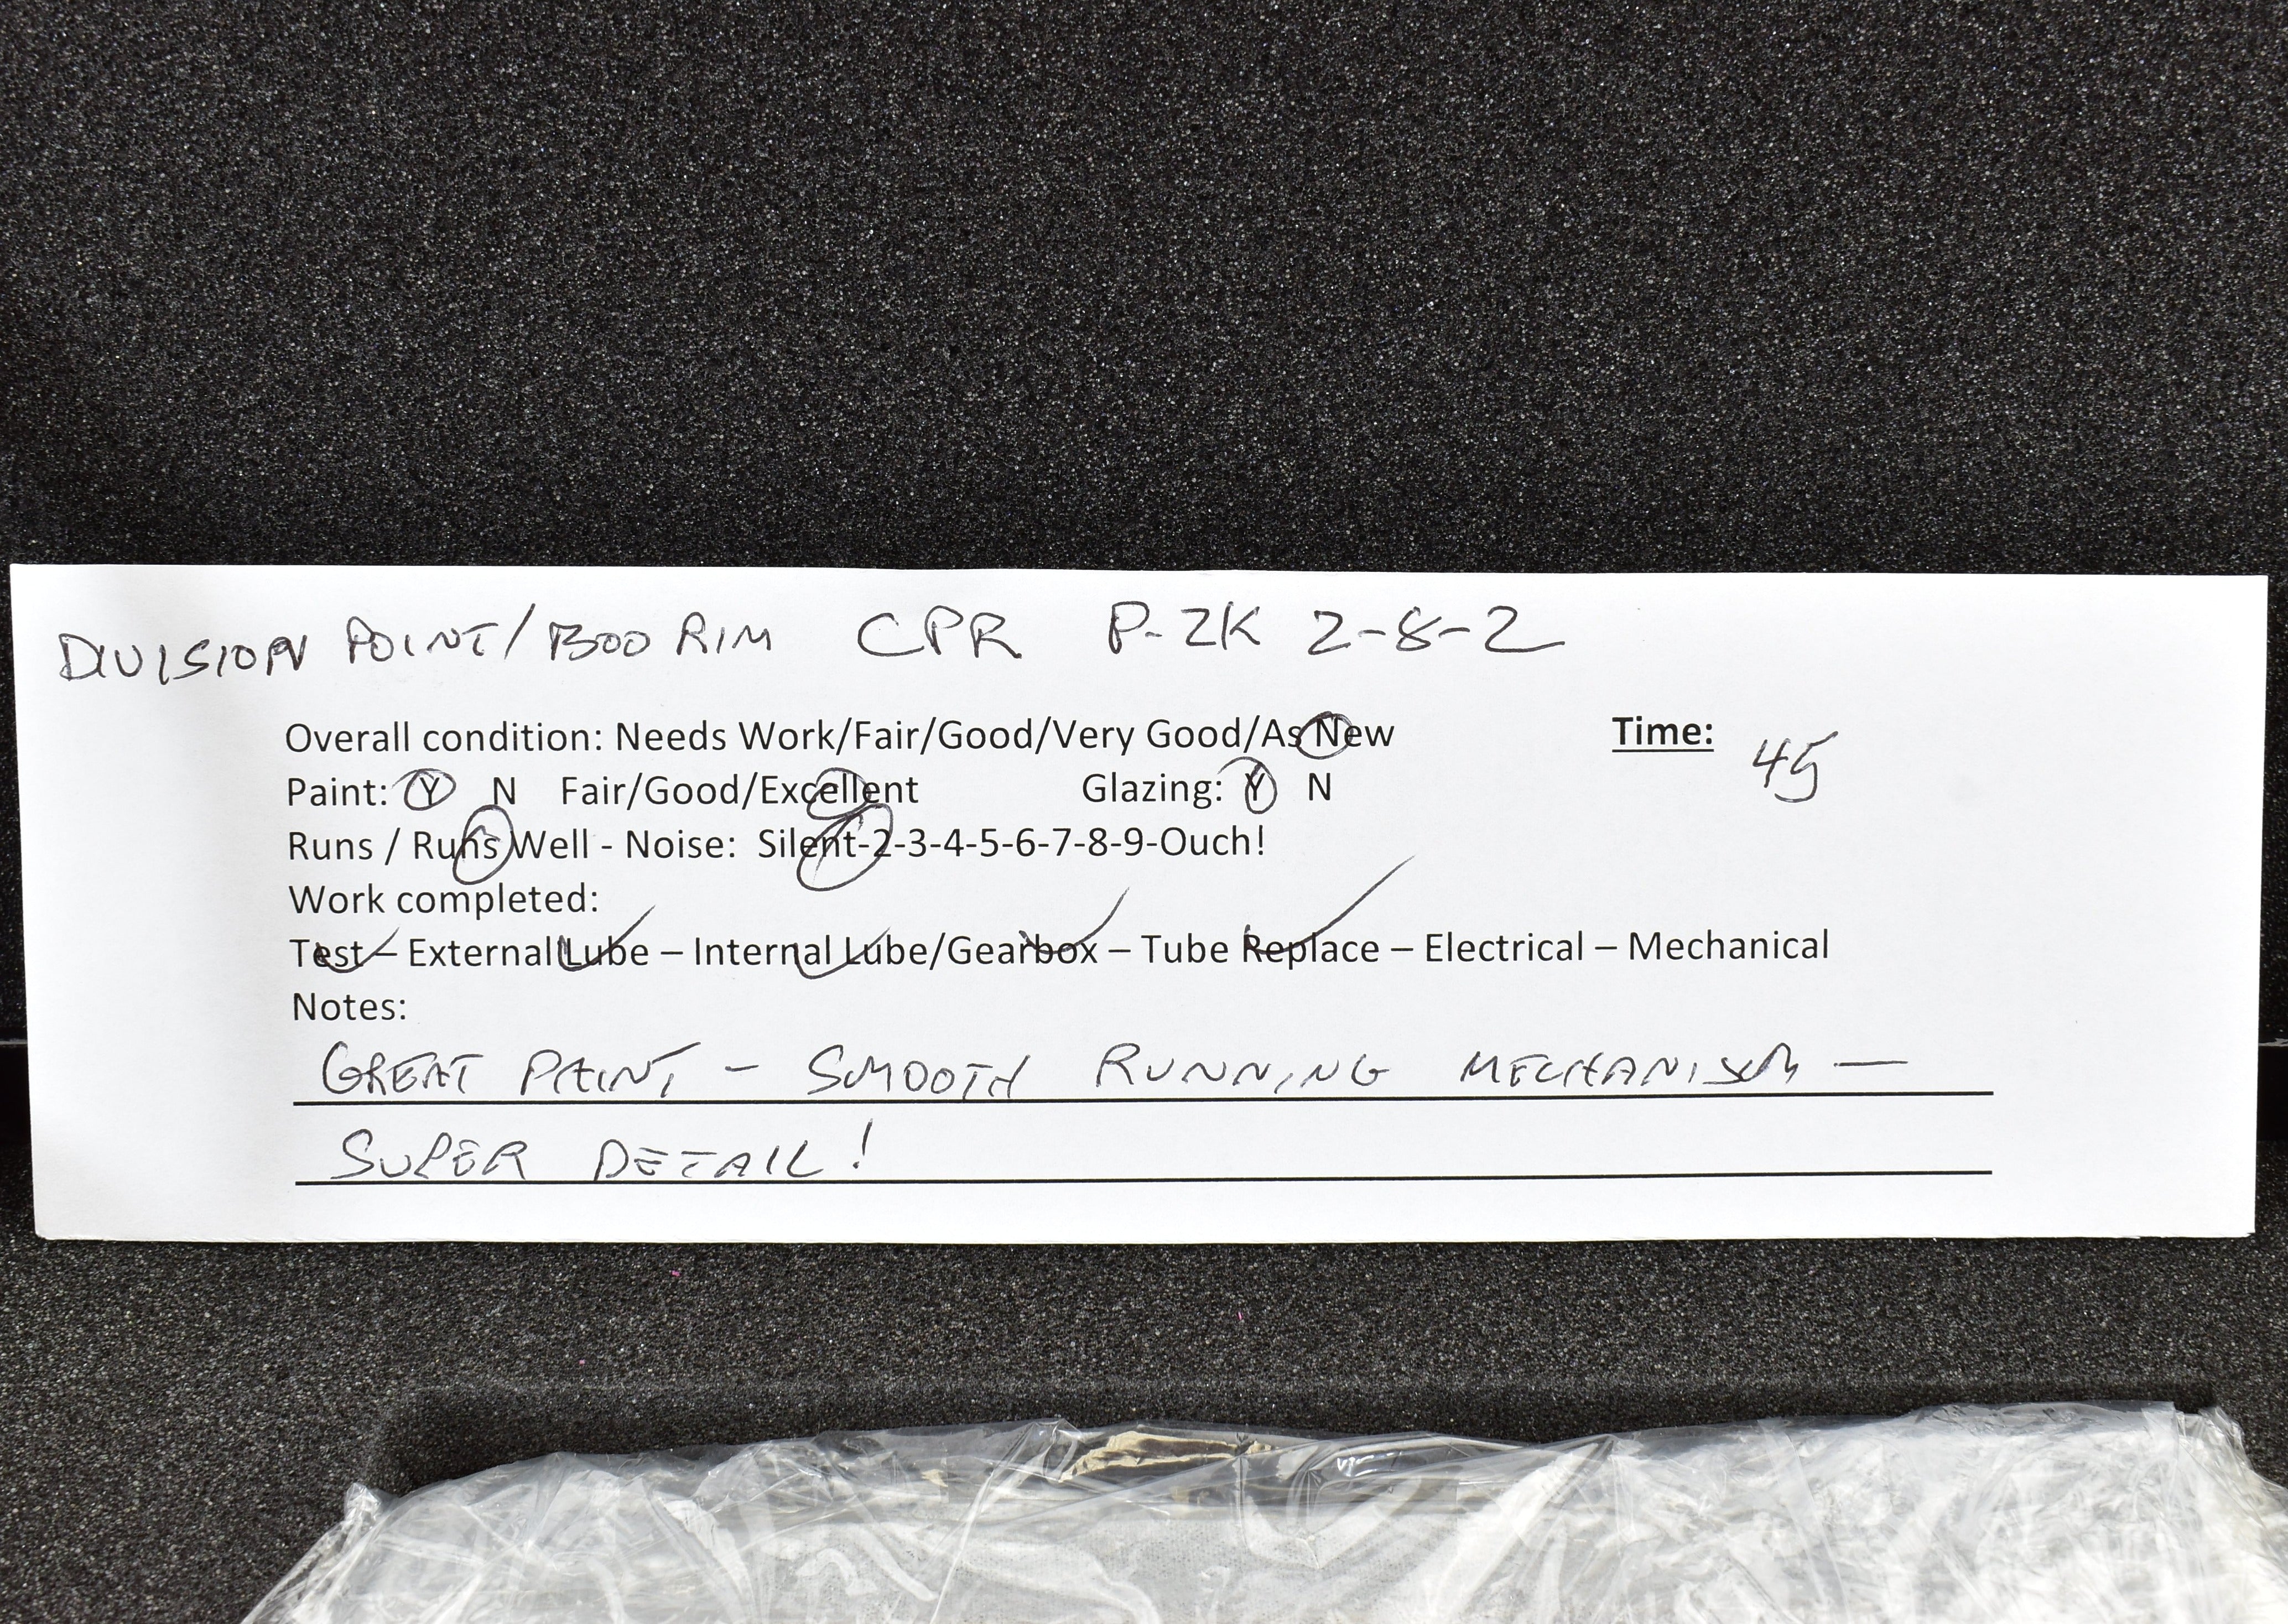 DIVISION POINT/BOO RIM CPR P-2K 2-8-2
Overall condition: Needs Work/Fair/Good/Very Good/As New Time: 45
Paint: Y N Fair/Good/Excellent Glazing: Y N
Runs / Runs Well - Noise: Silent-2-3-4-5-6-7-8-9-Ouch!
Work completed:
Test – External Lube – Internal Lube/Gearbox – Tube Replace – Electrical – Mechanical
Notes:
GREAT PAINT - SMOOTH RUNNING MECHANISM —
SUPER DETAIL!